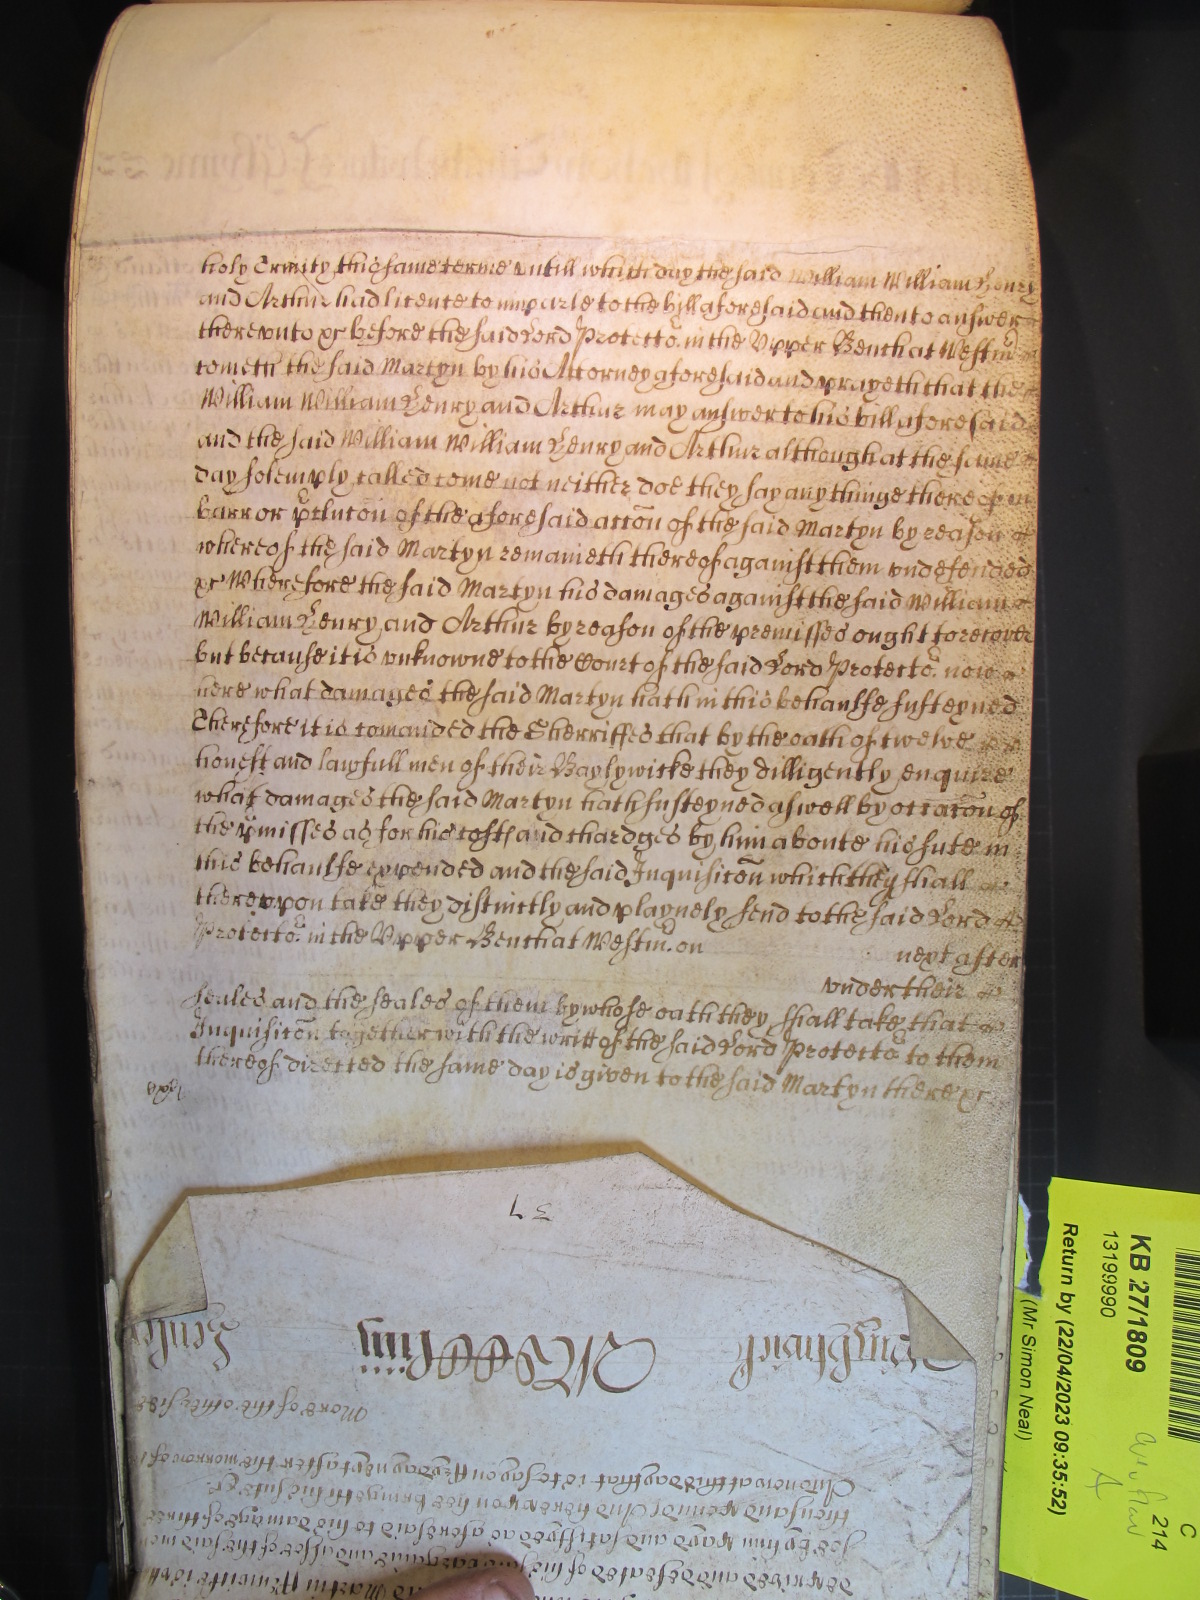 holy Trinity this same terme untill which day the said William William Henry
and Arthur had licence to imparle to the bill aforesaid and then to answer
thereunto &c before the said Lord Protector in the Upper Bench at Westm
cometh the said Martyn by his Attorney aforesaid and prayeth that the
William William Henry and Arthur may answer to his bill aforesaid
and the said William William Henry and Arthur although at the same
day solemply called come not neither doe they say any thinge thereof in
barr or pclucon of the aforesaid accon of the said Martyn by reason
whereof the said Martyn remaineth thereof against them undefended
&c Wherefore the said Martyn his damages against the said William
William Henry and Arthur by reason of the premisses ought to recover
but because it is unknowne to the Court of the said Lord Protector now
here what damages the said Martyn hath in this behaulfe susteyned
Therefore it is comanded the Sherriffes that by the oath of twelve
honest and lawfull men of their Baylywicke they dilligently enquire
what damages the said Martyn hath susteyned aswell by occacon of
the pmisses as for his costs and chardges by him aboute his sute in
this behaulfe expended and the said Inquisicon which they shall
thereupon take they distinctly and playnely send to the said Lord
Protector in the Upper Bench at Westm. on next after
under their
seales and the seales of them by whose oath they shall take that
Inquisicon together with the writt of the said Lord Protector to them
thereof directed the same day is given to the said Martyn there &c
37
More of the other side
And now at this day that is to say on Fryday next after the morrow of
thousand pounds And hereupon hee bringeth his sute &c
by him payd and satisfyed as aforesaid to his damage of three
deprived and defeated of his bargaine and of the said
Martin
KB 27/1809
13199990
Return by (22/04/2023 09:35:52)
(Mr Simon Neal)
C
214
A